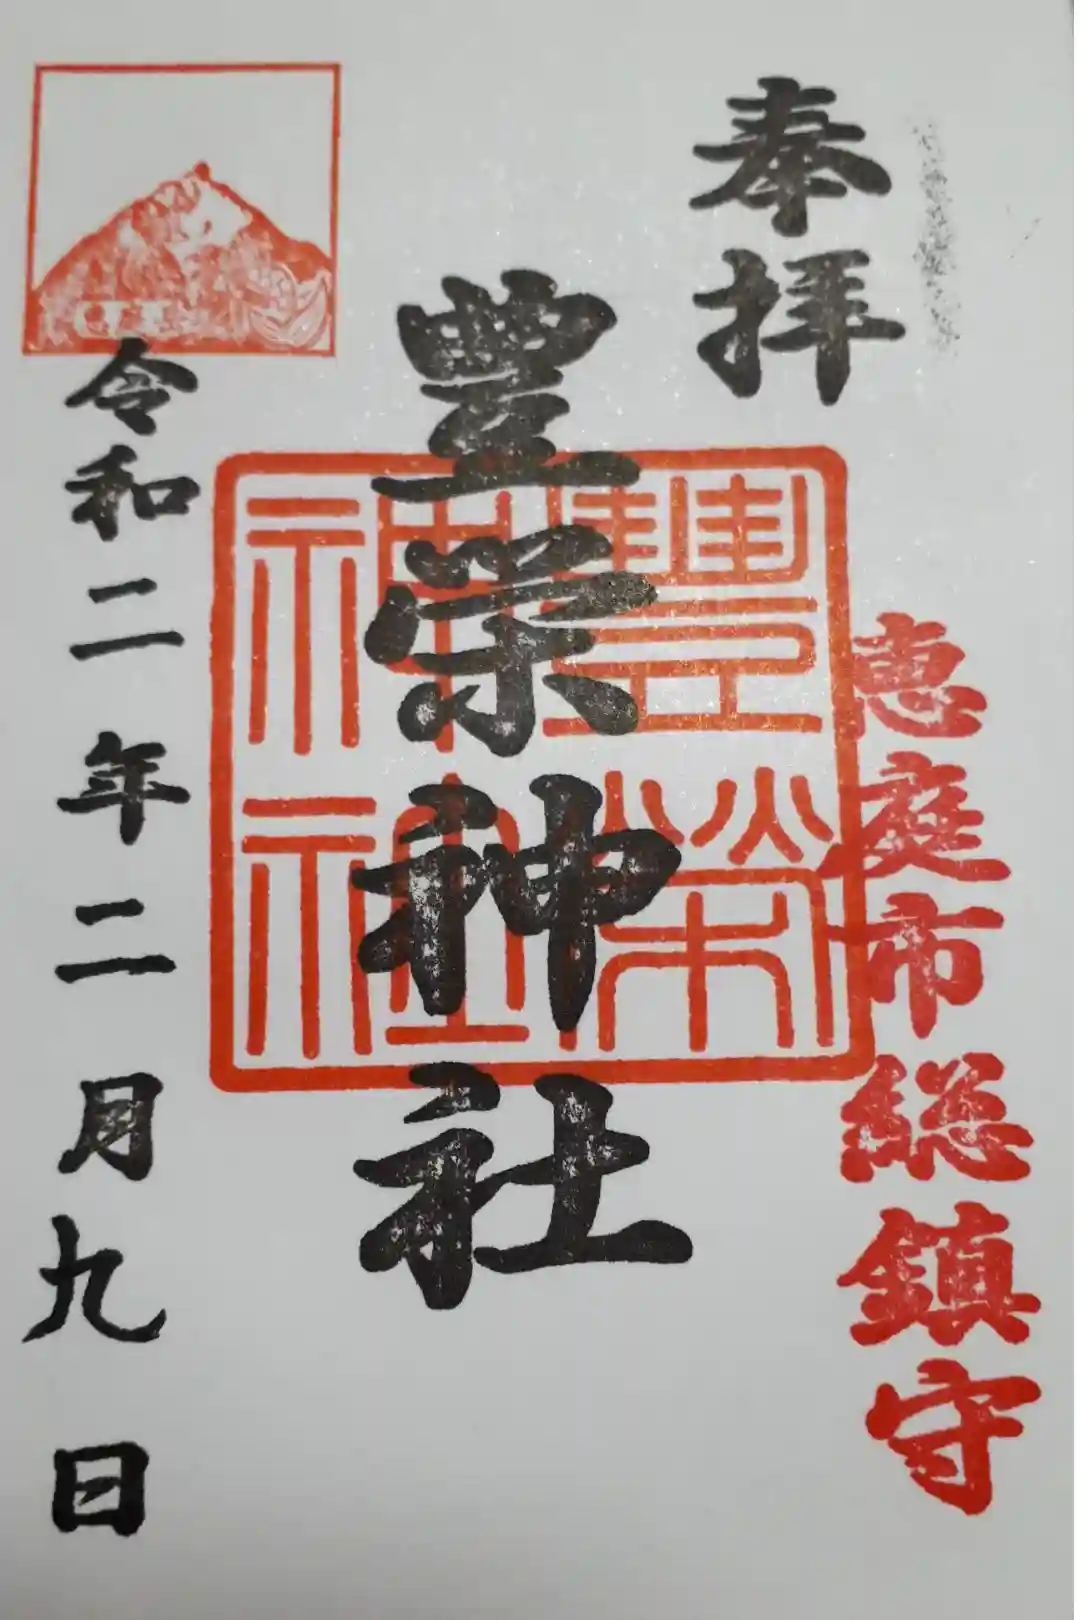 奉拝
恵庭市総鎮守
豊栄神社
豊榮神社
令和二年二月九日